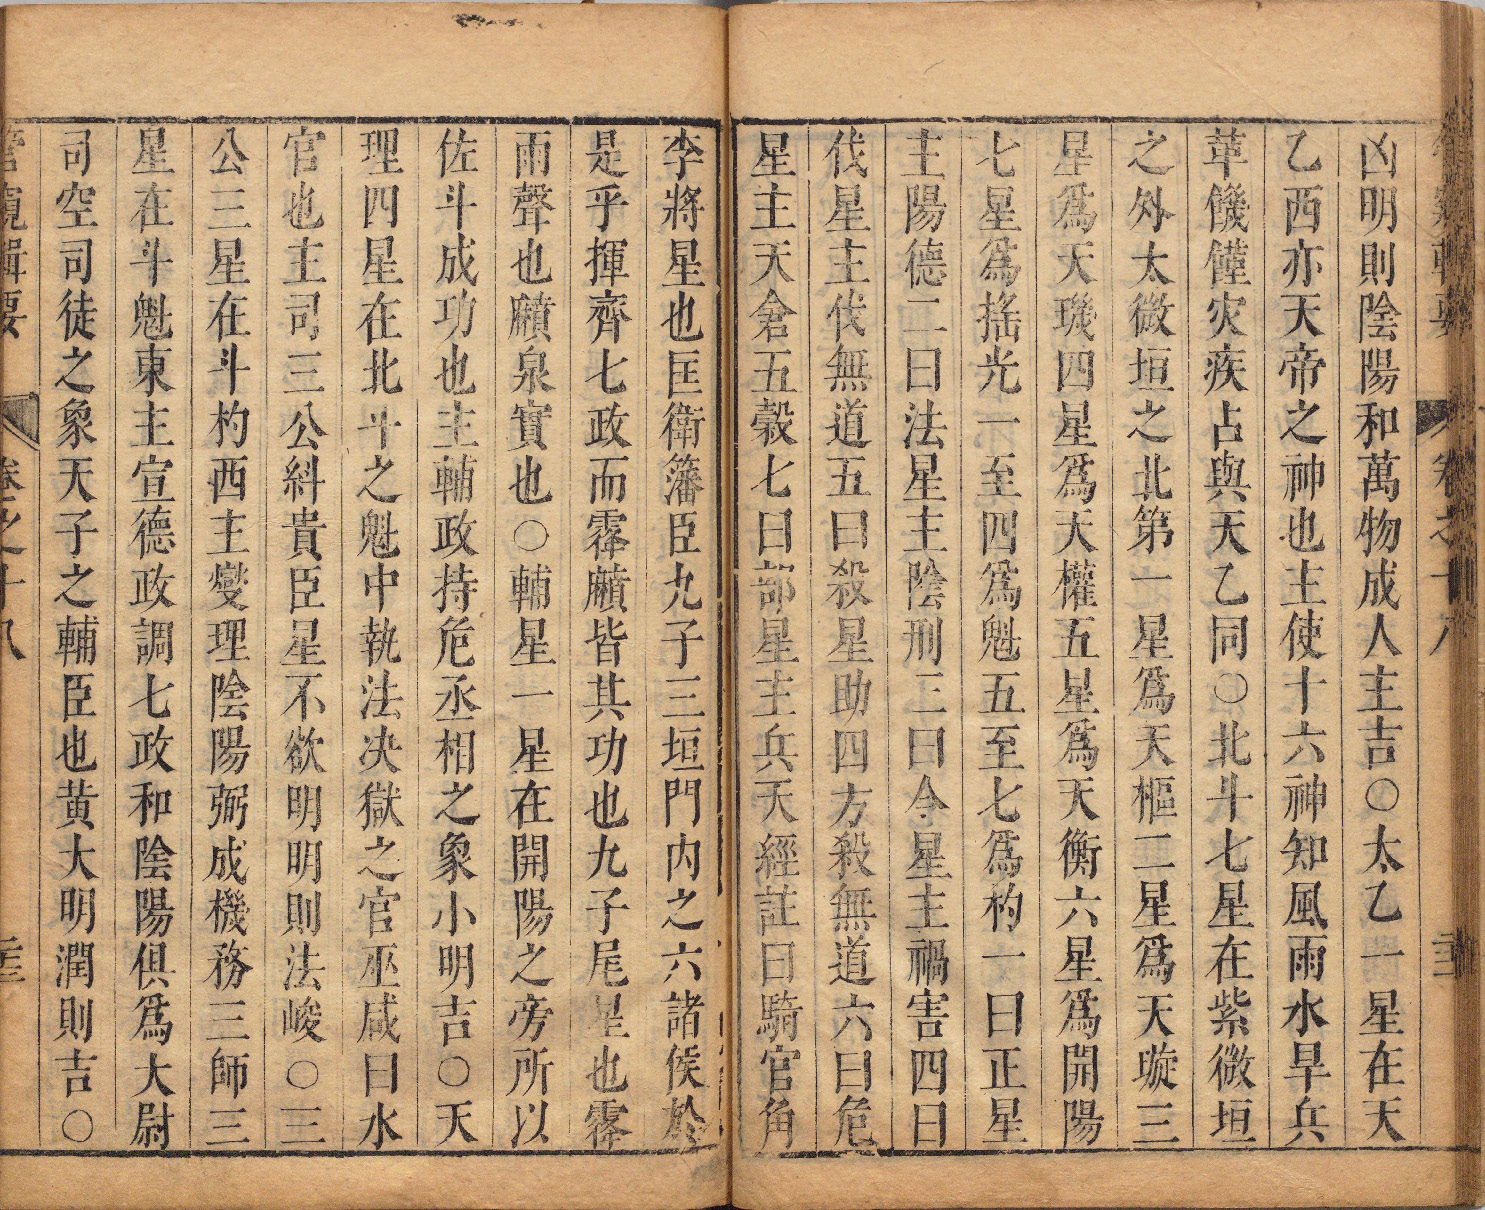 凶明則陰陽和萬物成人主吉〇太乙一星在天
乙西亦天帝之神也主使十六神知風雨水旱兵
革饑饉灾疾占與天乙同〇北斗七星在紫微垣
之外太微垣之北第一星爲天樞二星爲天璇三
星爲天璣四星爲天權五星爲天衡六星爲開陽
七星爲搖光一至四爲魁五至七爲杓一曰正星
主陽德二曰法星主陰刑三曰令星主禍害四曰
伐星主伐無道五曰殺星助四方殺無道六曰危
星主天倉五穀七曰部星主兵天經註曰騎官角
李將星也匡衛藩臣九子三垣門内之六諸侯於
是乎揮齊七政而霹𪎰皆其功也九子尾星也霹
雨聲也𪎰泉實也〇輔星一星在開陽之旁所以
佐斗成功也主輔政持危丞相之象小明吉〇天
理四星在北斗之魁中執法决獄之官巫咸曰水
官也主司三公糾貴臣星不欲明明則法峻〇三
公三星在斗杓西主燮理陰陽弼成機務三師三
星在斗魁東主宣德政調七政和陰陽俱爲大尉
司空司徒之象天子之輔臣也黄大明潤則吉〇
管窺輯要
卷之十八